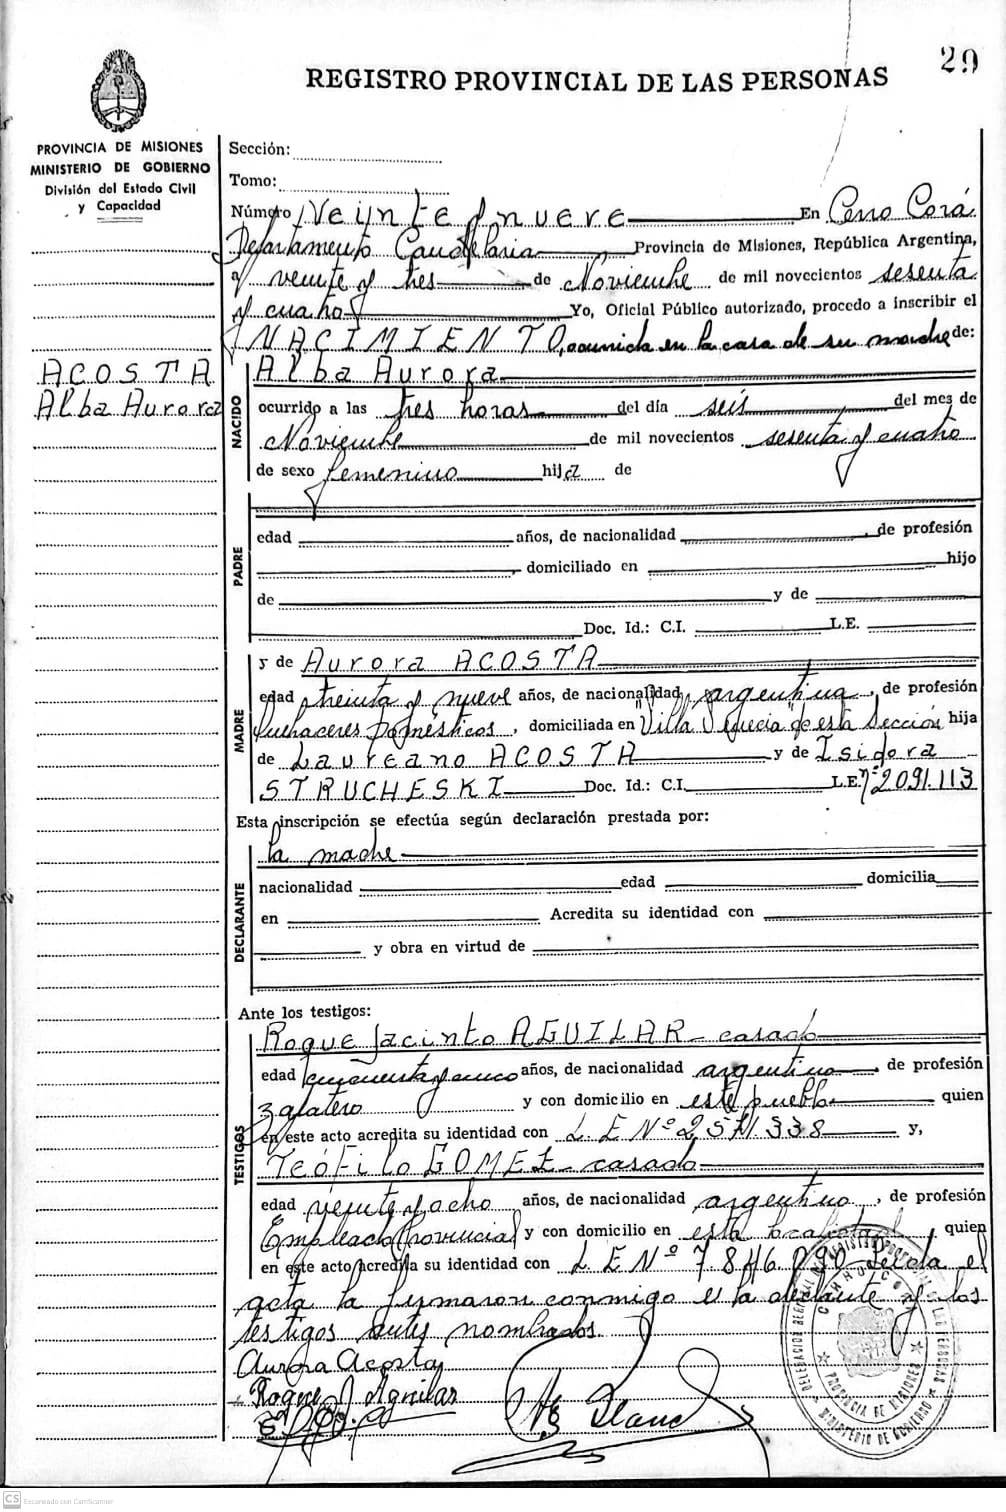 29
REGISTRO PROVINCIAL DE LAS PERSONAS
PROVINCIA DE MISIONES
MINISTERIO DE GOBIERNO
División del Estado Civil
y Capacidad
ACOSTA
Alba Aurora
Sección:
Tomo:
Número Veinte y nueve En Cerro Corá
Departamento Candelaria Provincia de Misiones, República Argentina,
a veinte y tres de Noviembre de mil novecientos sesenta
y cuatro Yo, Oficial Público autorizado, procedo a inscribir el
NACIMIENTO, ocurrido en la casa de su madre de:
NACIDO
Alba Aurora
ocurrido a las tres horas del día seis del mes de
Noviembre de mil novecientos sesenta y cuatro
de sexo femenino hija de
PADRE
edad años, de nacionalidad de profesión
domiciliado en hijo
de y de
Doc. Id.: C.I. L.E.
MADRE
y de Aurora ACOSTA
edad treinta y nueve años, de nacionalidad argentina, de profesión
quehaceres domésticos, domiciliada en "Villa Venecia" de esta Sección hija
de Laureano ACOSTA y de Isidora
STRUCHESKI Doc. Id.: C.I. L.E. nº 2091.113
Esta inscripción se efectúa según declaración prestada por:
DECLARANTE
la madre
nacionalidad edad domicilia
en Acredita su identidad con
y obra en virtud de
Ante los testigos:
TESTIGOS
Roque Jacinto AGUILAR - casado
edad cincuenta y cinco años, de nacionalidad argentino de profesión
zapatero y con domicilio en este pueblo quien
en este acto acredita su identidad con L.E Nº 2571338 y,
Teófilo GOMEZ - casado
edad veinte y ocho años, de nacionalidad argentino, de profesión
Empleado Provincial y con domicilio en esta localidad quien
en este acto acredita su identidad con L.E Nº 7.846.090 Leída el
acta la firmaron conmigo la declarante y los
testigos antes nombrados.
Aurora Acosta
Roque J Aguilar
DELEGACION REGISTRO PROVINCIAL DE LAS PERSONAS
CERRO CORA
PROVINCIA DE MISIONES
MINISTERIO DE GOBIERNO
CS Escaneado con CamScanner